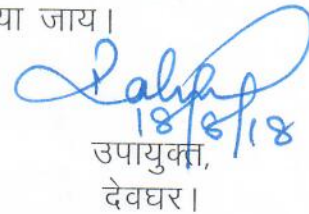 या जाय।
18/8/18
उपायुक्त,
देवघर।